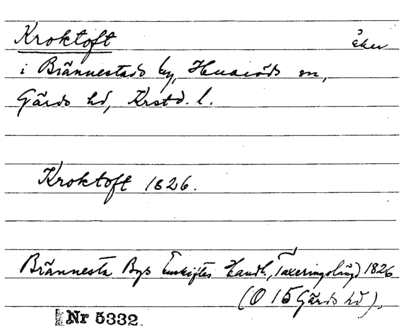 Kroktoft åker
i Brännestads by, Huaröds sn,
Gärds hd, Krstd. l.
Kroktoft 1826.
Brännesta Bys Enskiftes Handl., Taxeringslängd 1826
(O 15 Gärds hd).
Nr 5332.